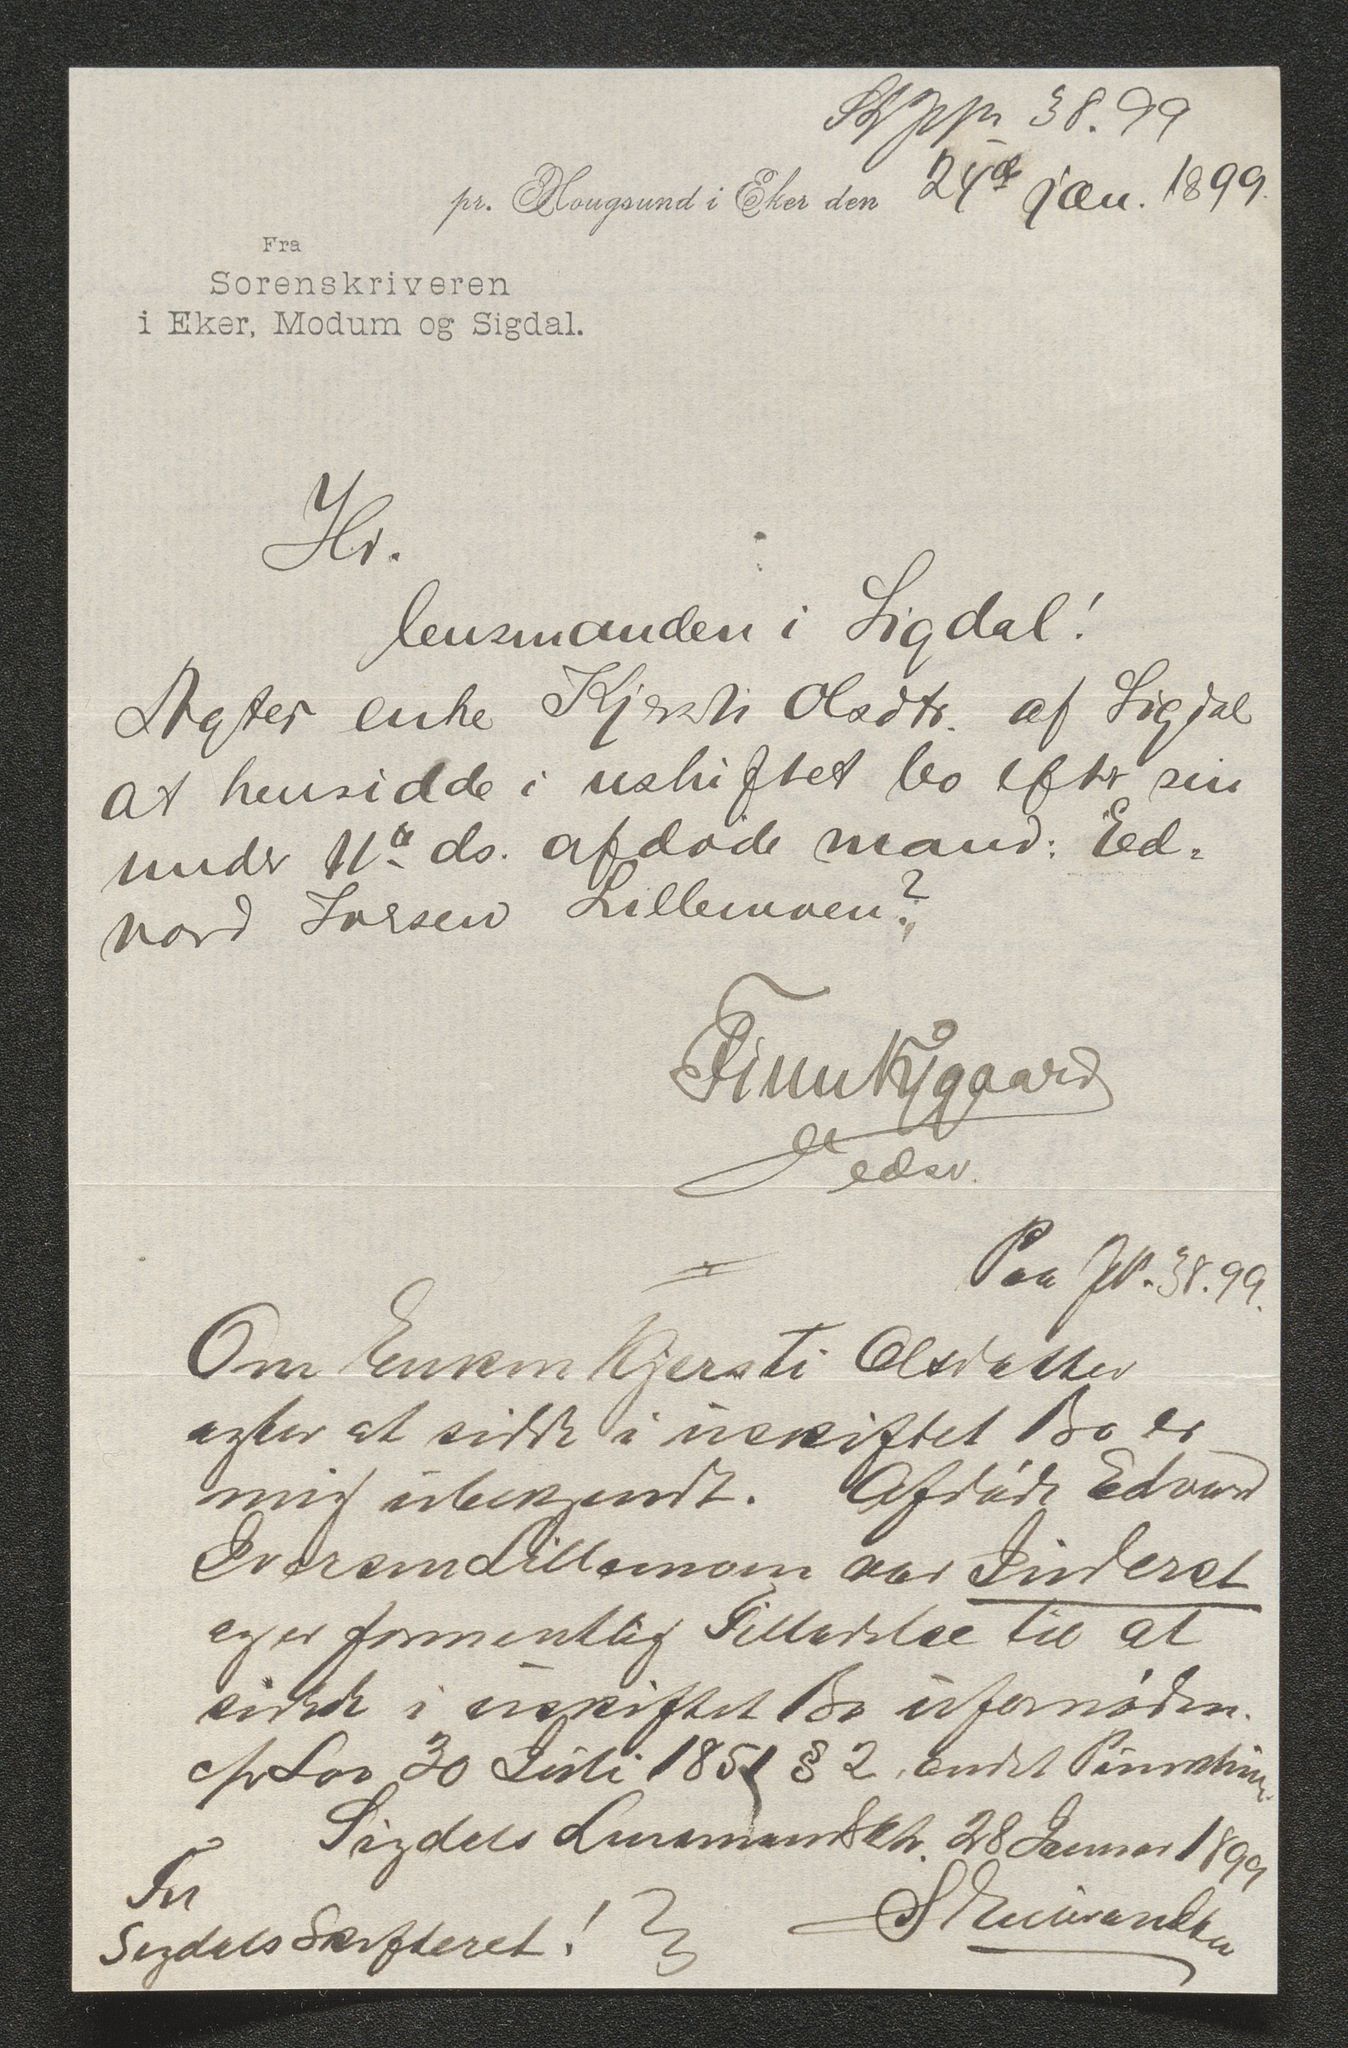 Skfppr 38.99
pr. Hougsund i Eker den 24de jan. 1899.
Fra
Sorenskriveren
i Eker, Modum og Sigdal.
Hr.
lensmanden i Sigdal!
Agter enke Kjersti Olsdtr. af Sigdal
at hensidde i uskiftet bo efter sin
under 11te ds. afdøde mand: Ed-
vard Iversen Lillemoen?
Finn Nygaard
edsv.
Paa JP. 38.99.
Om Enken Kjersti Olsdatter
agter at sidde i uskiftet Bo er
mig ubekjendt. Afdøde Edvard
Iversen Lillemoen var Inderst
og er formentlig Tilladelse til at
sidde i uskiftet Bo ufornøden.
cfr Lov 30 Juli 1851 § 2, andet Punktum.
Sigdals Lensmandsktr. 28 Januar 1899
Til
Sigdals Skifteret!